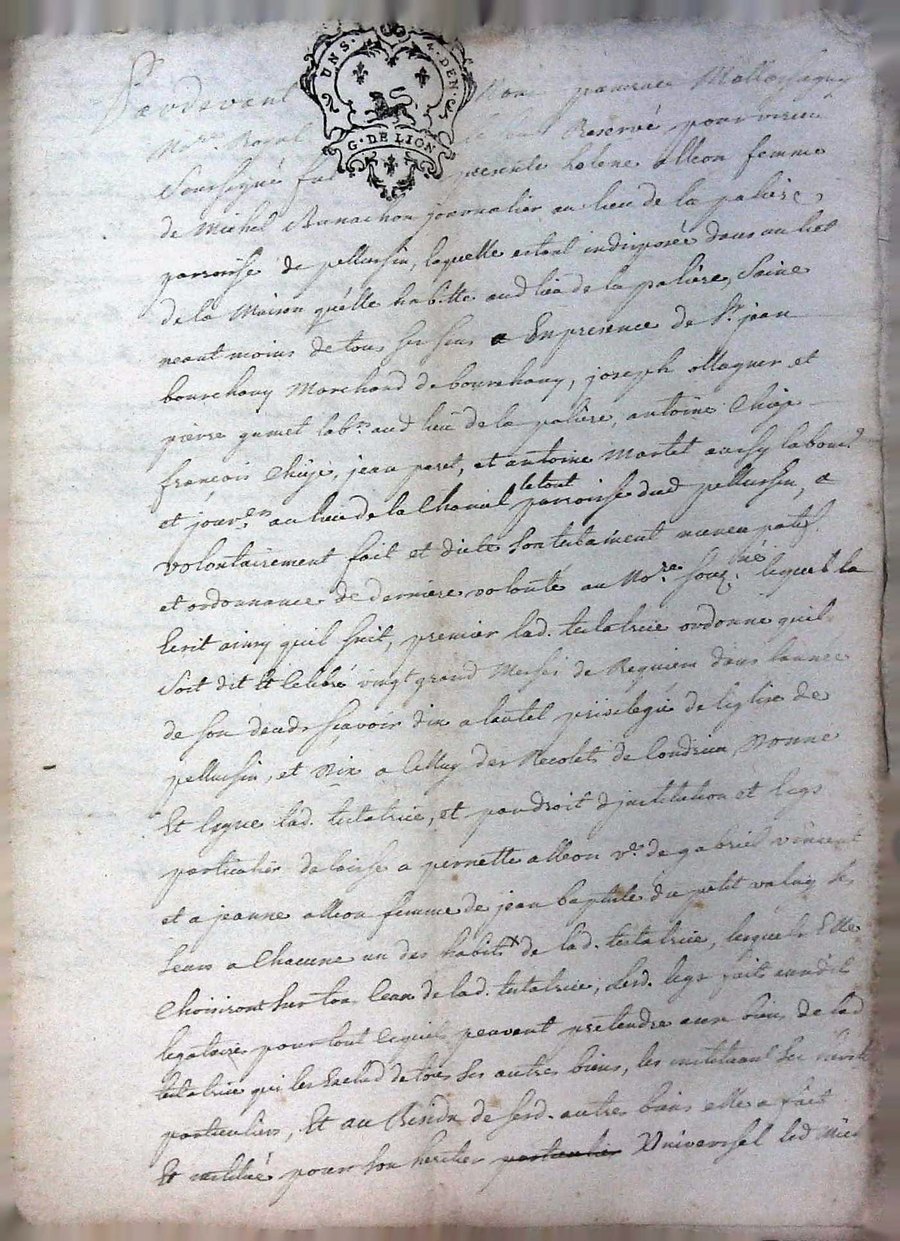 UN S. 4. DEN.
G. DE LION
Pardevant Nous
No.re Royal Reservé pour
Soussigné fut presente helene alleon femme
de Michel Banachon journalier au lieu de la paliere
parroisse de pellussin, laquelle estant indisposée dans un lict
de la Maison qu'elle habitte aud lieu de la paliere, Saine
neantmoins de tous ses sens a En presence de Sr. jean
bourchany Marchand de bourchany, joseph ollagner et
pierre gumet lab.rs aud lieu de la paliere, antoine Chize
françois Chize, jean paret, et antoine Martel aussy labour.s
et jour.rs au lieu de la Chanal le tout parroisse dud pellussin, a
volontairement fait et dicté son testament nuncupatif
et ordonnance de derniere volonté au No.re souz.né lequel la
Ecrit ainsy quil suit, premier lad. testatrice ordonne quil
soit dit et celebré vingt grand Messes de Requiem dans lannée
de son deceds scavoir dix a lautel privilegié de leglise de
pellussin, et dix a Celluy des Recolets de Condrieu Donne
Et legue lad. testatrice, et par droit d'institution et legs
particulier delaisse a pernette alleon v.e de gabriel vincent
et a jeanne alleon femme de jean baptiste du petit valuy ses
seurs a Chacune un des habits de lad. testatrice, lesquels Elles
Choisiront sur tous Ceux de lad. testatrice, lesd. legs fait auxd.
legataires pour tout Ce quils peuvent pretendre aux biens de lad
testatrice qui les Exclud de tous ses autres biens, les instituant ses
particuliers, Et au Residu de sesd. autres biens elle a fait
Et institué pour son heritier particulier Universel led